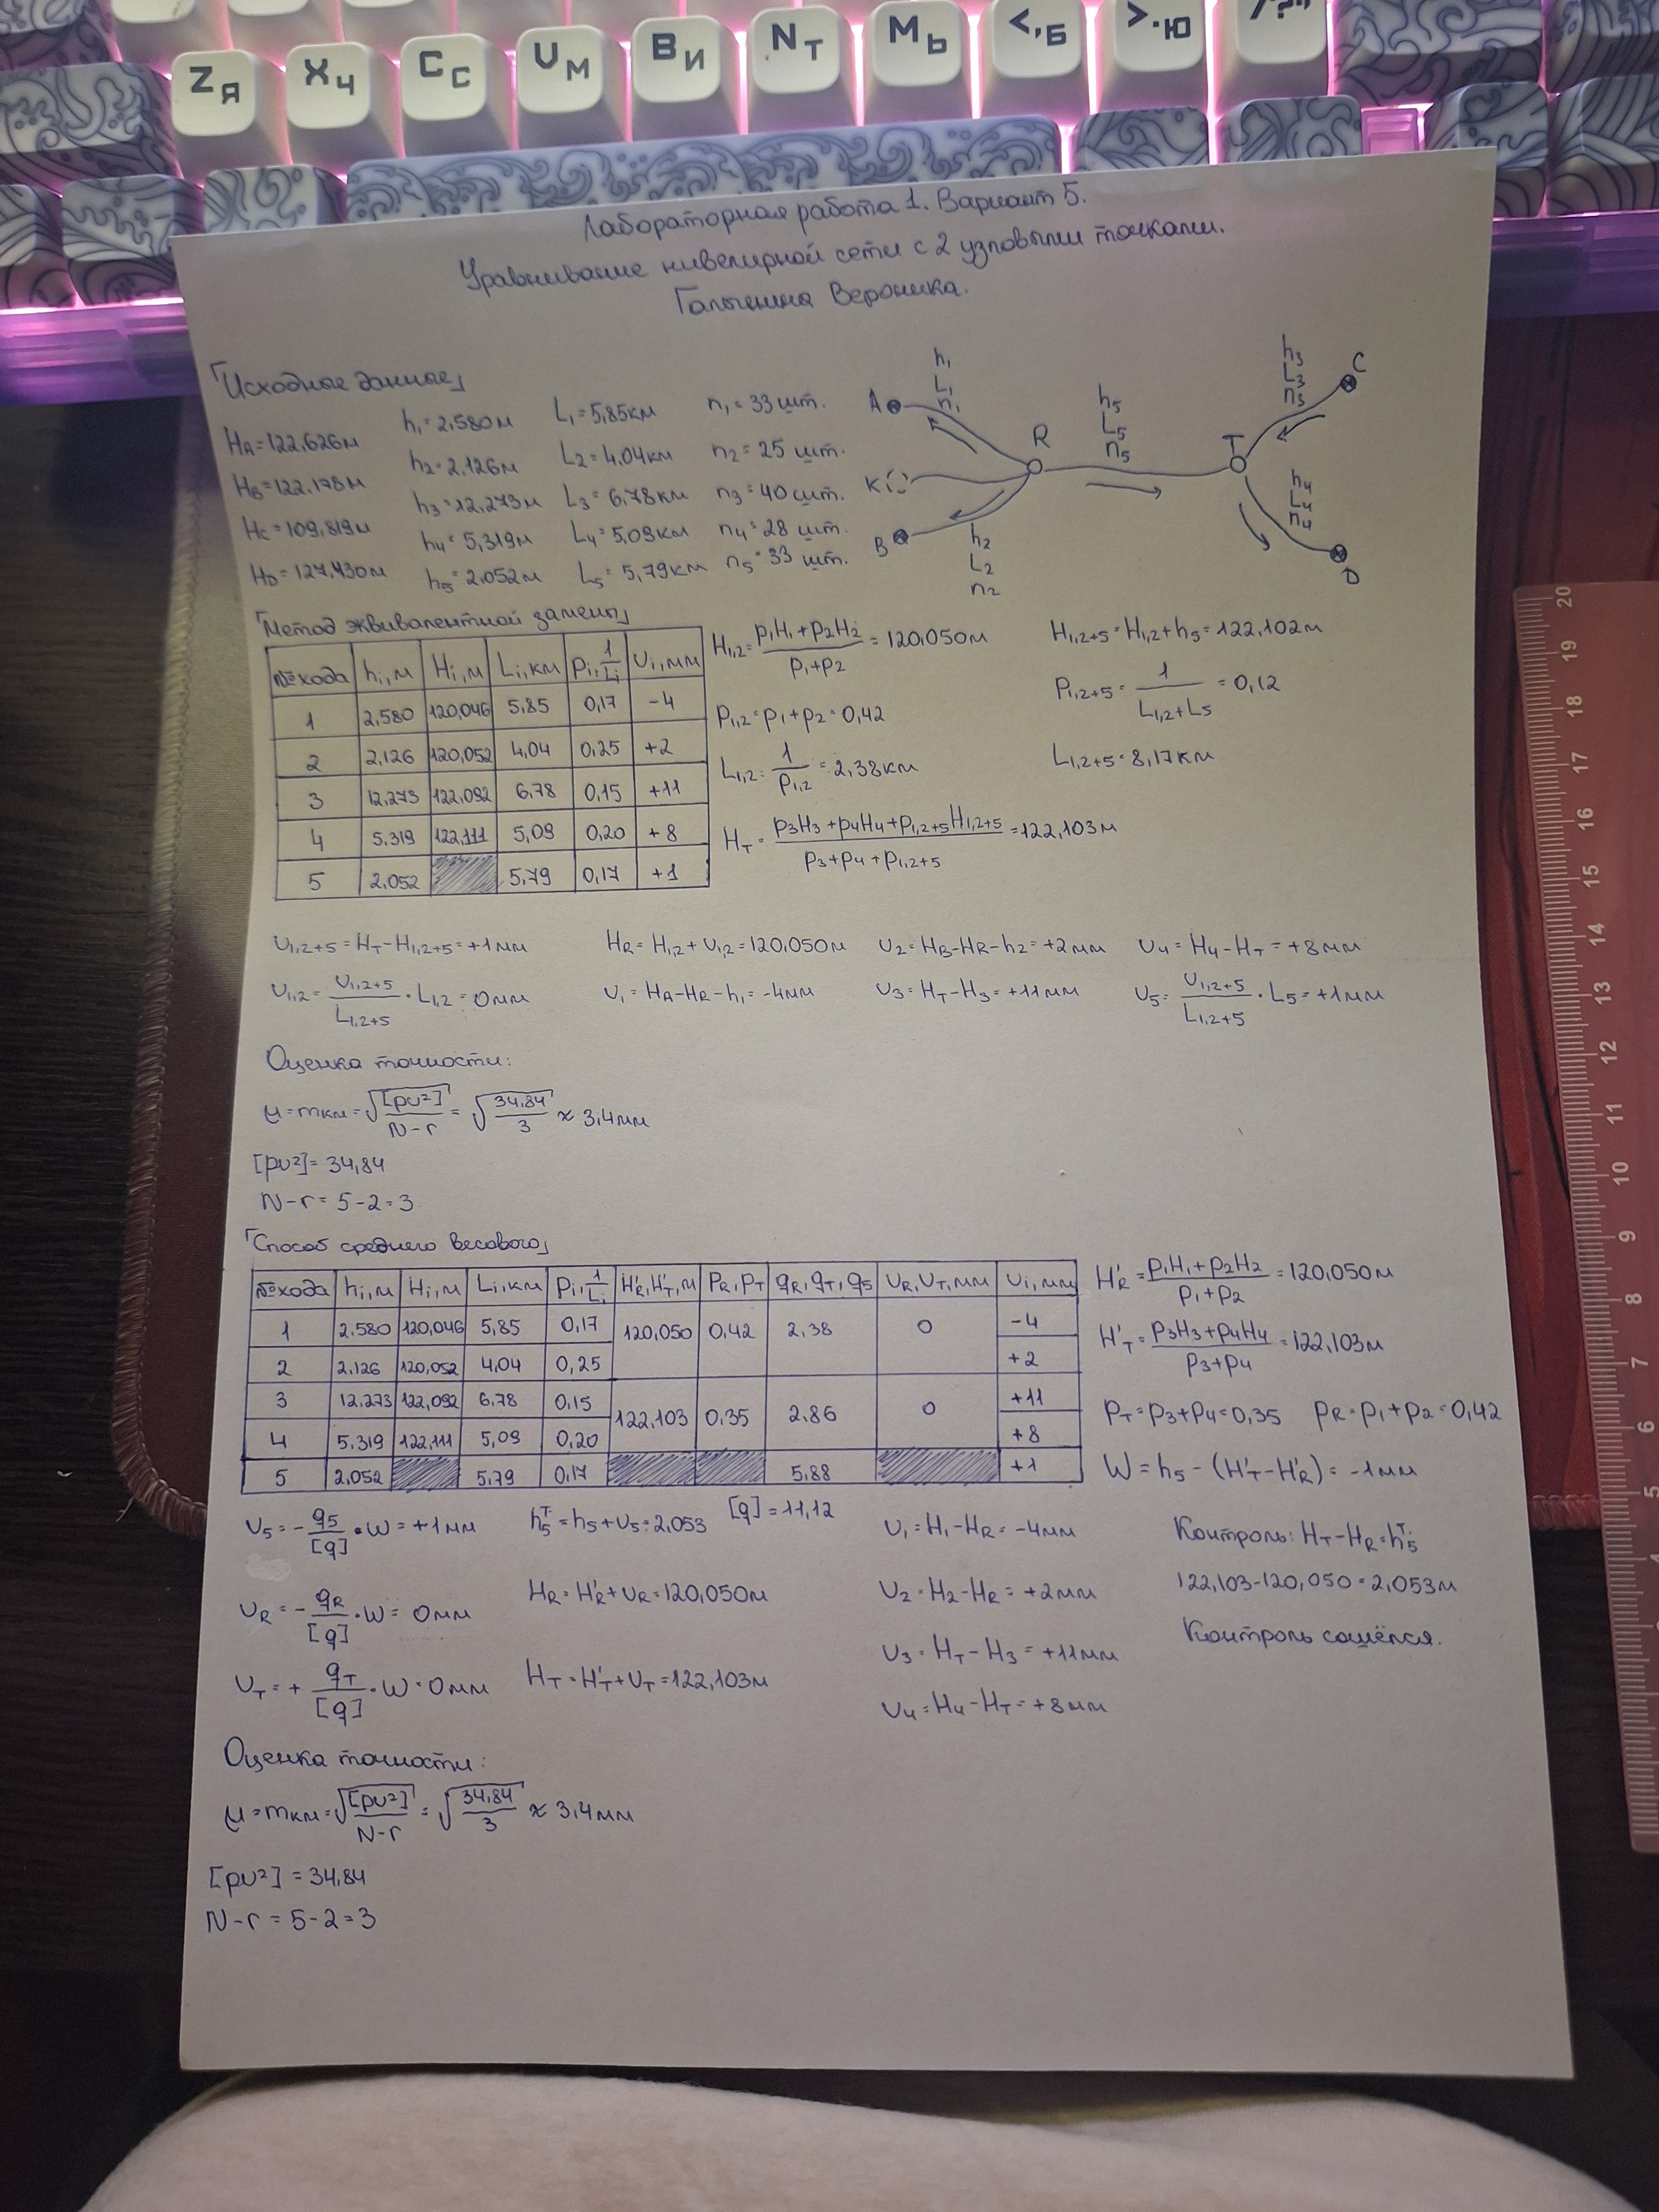 Z Я
X Ч
C С
U М
В И
N Т
M Ь
<, Б
>. Ю
Лабораторная работа 1. Вариант 5.
Уравнивание нивелирной сети с 2 узловыми точками.
Галынина Вероника.
「Исходные данные」
HA=122.626м h1=2.580м L1=5,85км n1=33 шт.
HB=122.178м h2=2,126м L2=4,04км n2=25 шт.
HC=109,819м h3=12,273м L3=6,78км n3=40 шт.
HD=127,430м h4=5,319м L4=5,09км n4=28 шт.
h5=2.052м L5=5,79км n5=33 шт.
A h1 L1 n1
K
B h2 L2 n2
R
h5 L5 n5
T
h3 L3 n3 C
h4 L4 n4 D
「Метод эквивалентной замены」
№хода hi,м Hi,м Li,км pi,1/Li υi,мм
1 2.580 120,046 5,85 0,17 -4
2 2,126 120,052 4,04 0,25 +2
3 12,273 122,092 6,78 0,15 +11
4 5.319 122,111 5,09 0,20 +8
5 2.052 5,79 0,17 +1
H1,2=(p1H1+p2H2)/(p1+p2)=120,050м H1,2+5=H1,2+h5=122,102м
P1,2=p1+p2=0,42 P1,2+5=1/(L1,2+L5)=0,12
L1,2=1/P1,2=2,38км L1,2+5=8,17км
HT=(p3H3+p4H4+p1,2+5H1,2+5)/(p3+p4+p1,2+5)=122,103м
υ1,2+5=HT-H1,2+5=+1мм HR=H1,2+υ1,2=120,050м υ2=HB-HR-h2=+2мм υ4=H4-HT=+8мм
υ1,2=υ1,2+5/L1,2+5·L1,2=0мм υ1=HA-HR-h1=-4мм υ3=HT-H3=+11мм υ5=υ1,2+5/L1,2+5·L5=+1мм
Оценка точности:
μ=mкм=√([pυ²]/(N-r))=√(34,84/3)≈3,4мм
[pυ²]=34,84
N-r=5-2=3
「Способ среднего весового」
№хода hi,м Hi,м Li,км pi,1/Li H'R,H'T,м PR,PT qR,qT,q5 υR,υT,мм υi,мм
1 2,580 120,046 5,85 0,17 120,050 0,42 2,38 0 -4
2 2,126 120,052 4,04 0,25 +2
3 12,273 122,092 6,78 0,15 122,103 0,35 2,86 0 +11
4 5.319 122,111 5,09 0,20 +8
5 2,052 5,79 0,17 5,88 +1
H'R=(p1H1+p2H2)/(p1+p2)=120,050м
H'T=(p3H3+p4H4)/(p3+p4)=122,103м
PT=p3+p4=0,35 PR=p1+p2=0,42
W=h5-(H'T-H'R)=-1мм
υ5=-q5/[q]·W=+1мм h5ᵀ=h5+υ5=2,053 [q]=11,12 υ1=H1-HR=-4мм Контроль: HT-HR=h5ᵀ
υR=-qR/[q]·W=0мм HR=H'R+υR=120,050м υ2=H2-HR=+2мм 122,103-120,050=2,053м
υ3=HT-H3=+11мм Контроль сошёлся.
υT=+qT/[q]·W=0мм HT=H'T+υT=122,103м υ4=H4-HT=+8мм
Оценка точности:
μ=mкм=√([pυ²]/(N-r))=√(34,84/3)≈3,4мм
[pυ²]=34,84
N-r=5-2=3
20
19
18
17
16
15
14
13
12
11
10
9
8
7
6
5
4
3
2
1